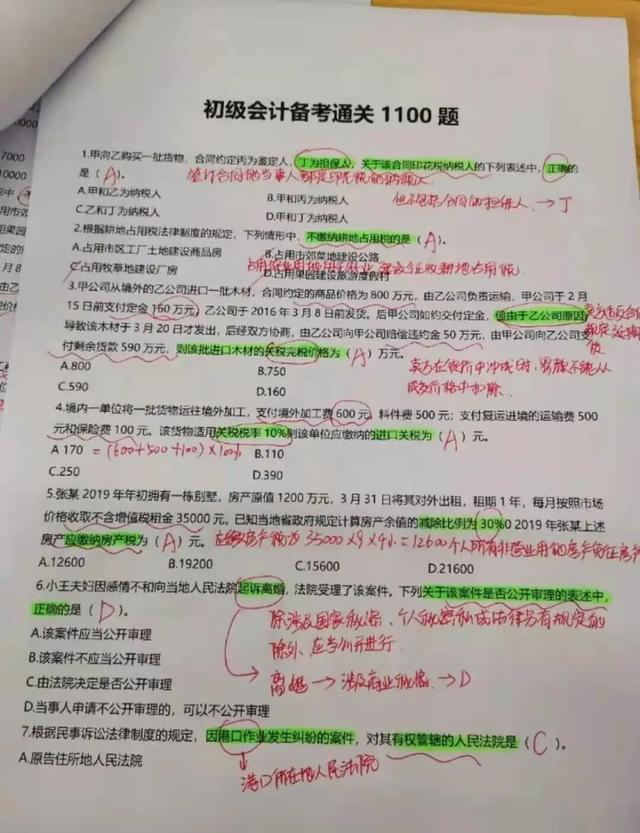 初级会计备考通关1100题
1.甲向乙购买一批货物，合同约定丙为鉴定人，丁为担保人，关于该合同印花税纳税人的下列表述中，正确的
是（A）。签订合同的当事人都是印花税的纳税人
A.甲和乙为纳税人 B.甲和丙为纳税人 但不包括合同的担保人 → 丁
C.乙和丁为纳税人 D.甲和丁为纳税人
2.根据耕地占用税法律制度的规定，下列情形中，不缴纳耕地占用税的是（A）。
A.占用市区工厂土地建设商品房 B.占用市郊菜地建设公路
C.占用牧草地建设厂房 D.占用果园建设旅游度假村
3.甲公司从境外的乙公司进口一批木材，合同约定的商品价格为 800 万元，由乙公司负责运输，甲公司于 2 月
15 日前支付定金 160 万元，乙公司于 2016 年 3 月 8 日前发货。后甲公司如约交付定金，但由于乙公司原因
导致该木材于 3 月 20 日才发出，后经双方协商，由乙公司向甲公司赔偿违约金 50 万元，由甲公司向乙公司支
付剩余货款 590 万元，则该批进口木材的关税完税价格为（A）万元。
A.800 B.750 卖方在货价中冲减时，男颜不能从
C.590 D.160 成交价格中扣除
4.境内一单位将一批货物运往境外加工，支付境外加工费 600 元，料件费 500 元；支付复运进境的运输费 500
元和保险费 100 元。该货物适用关税税率 10%则该单位应缴纳的进口关税为（A）元。
A 170 =(600+500+100)×100% B.110
C.250 D.390
5.张某 2019 年年初拥有一栋别墅，房产原值 1200 万元，3 月 31 日将其对外出租，租期 1 年，每月按照市场
价格收取不含增值税租金 35000 元。已知当地省政府规定计算房产余值的减除比例为 30%0 2019 年张某上述
房产应缴纳房产税为（A）元。应缴房产税为 35000×9×4%=12600 个人所有非营业用的房产免征房产
A.12600 B.19200 C.15600 D.21600
6.小王夫妇因感情不和向当地人民法院起诉离婚，法院受理了该案件。下列关于该案件是否公开审理的表述中，
正确的是（D）。 除涉及国家秘密、个人秘密和或法律另有规定的
A.该案件应当公开审理 除外、应当公开进行
B.该案件不应当公开审理
C.由法院决定是否公开审理 离婚 → 涉及商业秘密 → D
D.当事人申请不公开审理的，可以不公开审理
7.根据民事诉讼法律制度的规定，因港口作业发生纠纷的案件，对其有权管辖的人民法院是（C）。
A.原告住所地人民法院 港口所在地人民法院